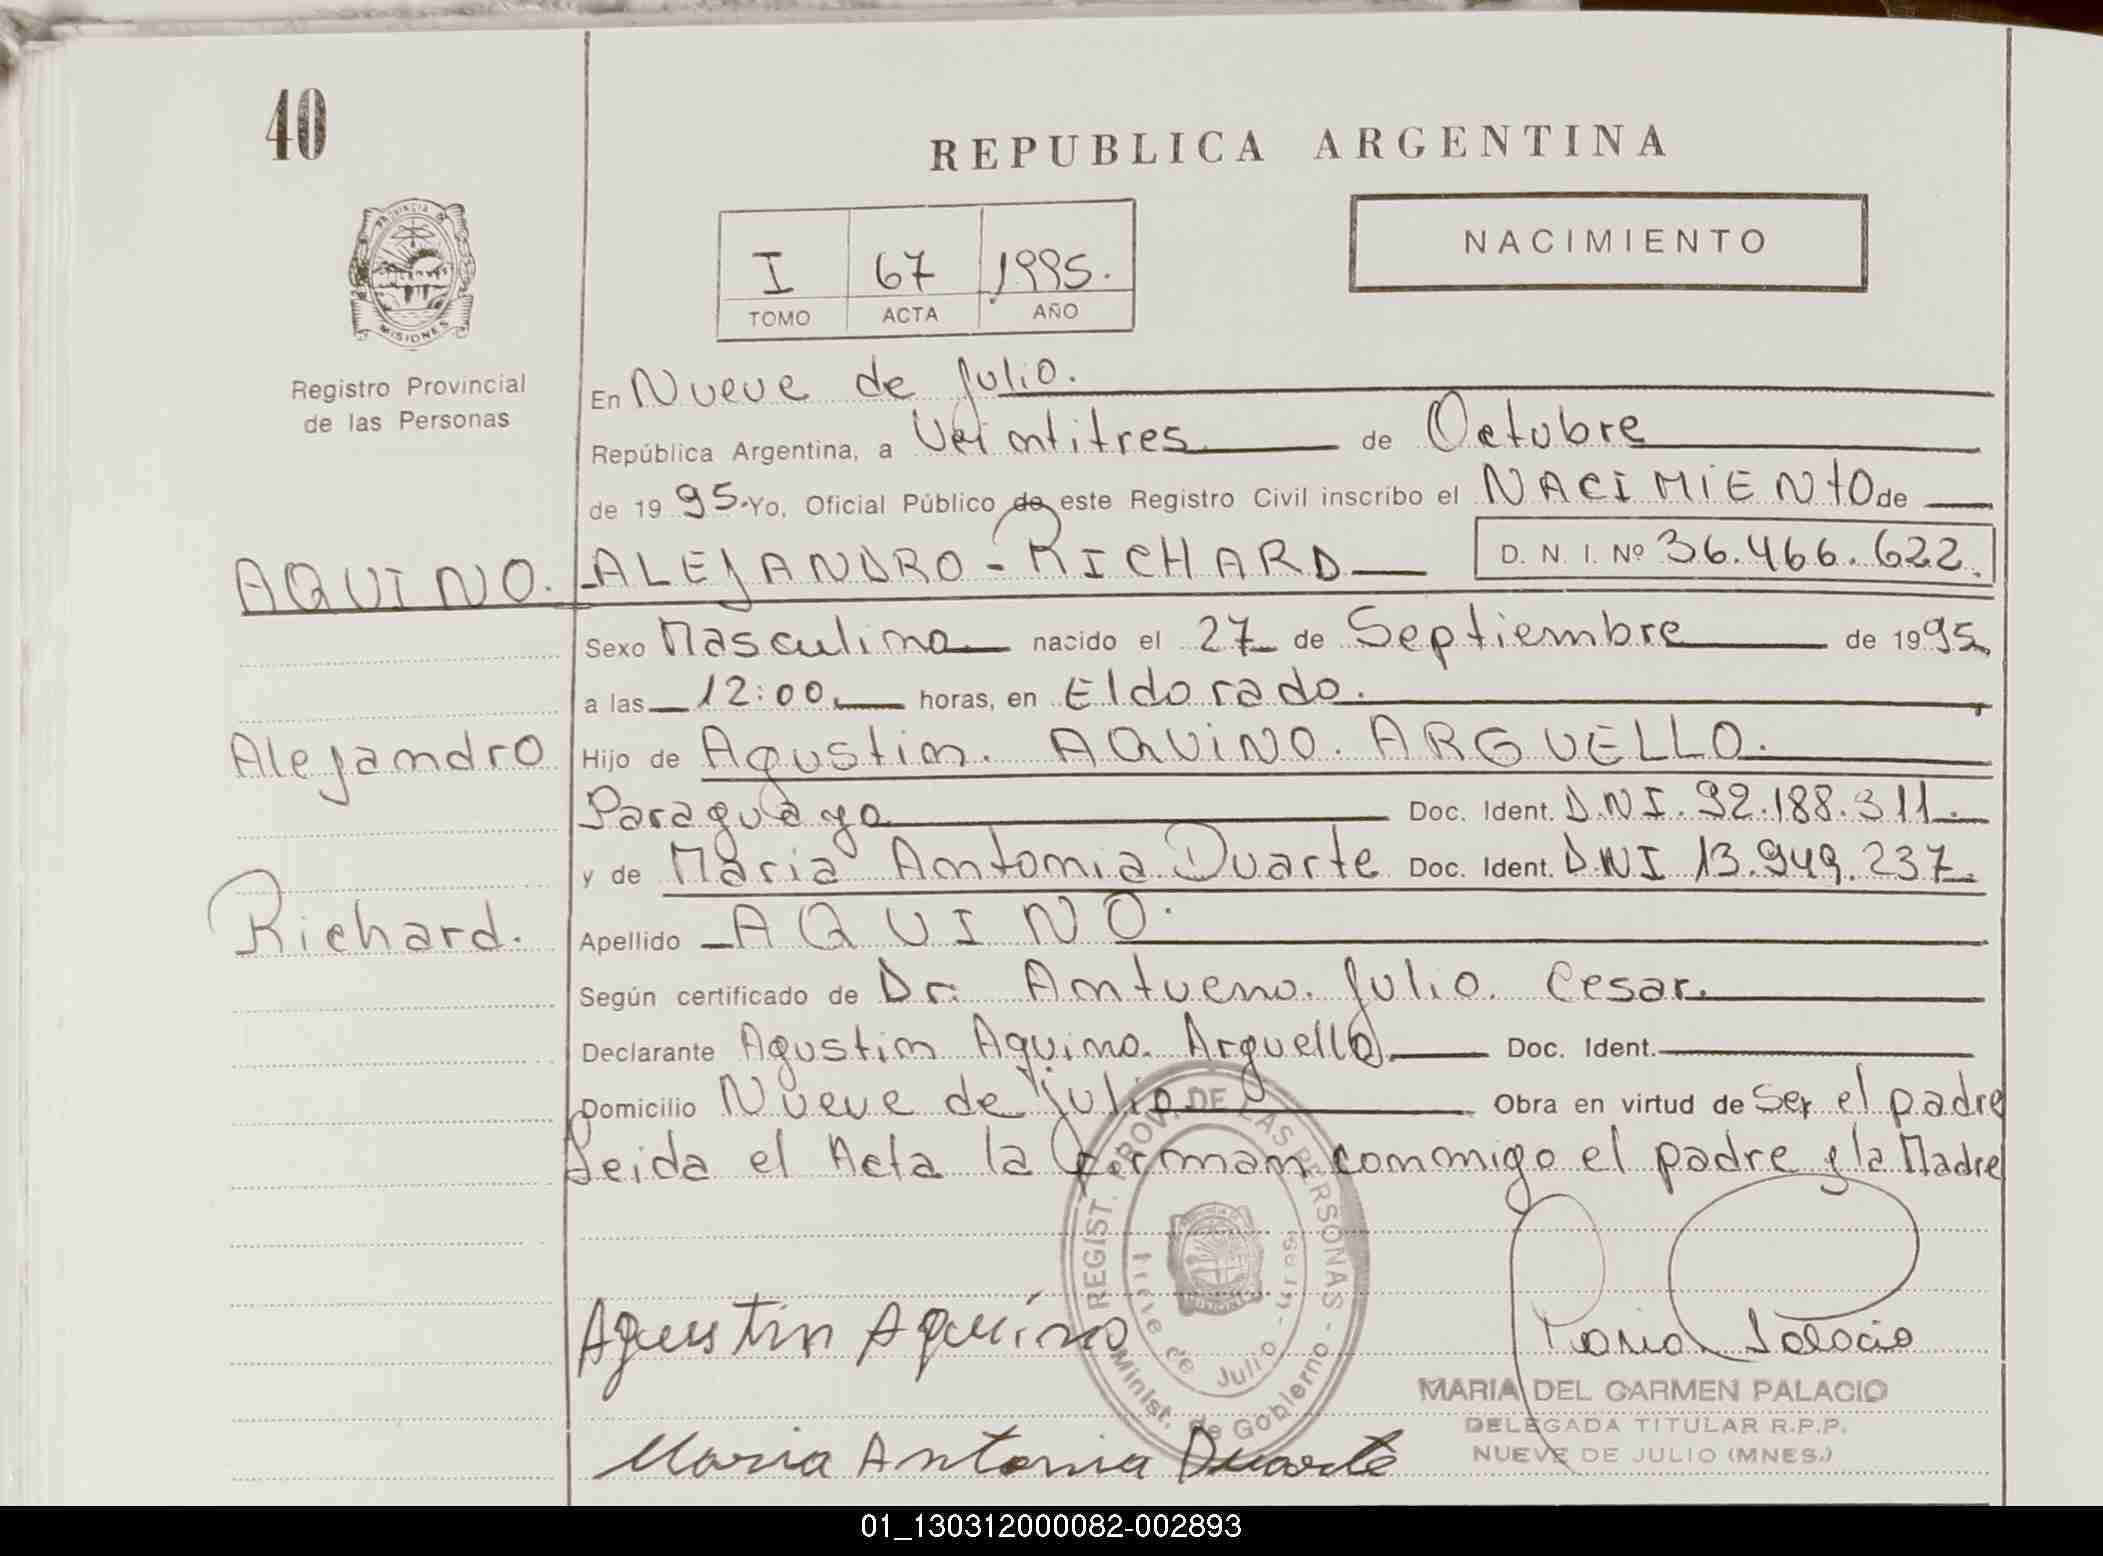 40
REPUBLICA ARGENTINA
PROVINCIA DE
MISIONES
NACIMIENTO
I 67 1995.
TOMO ACTA AÑO
Registro Provincial
de las Personas
En Nueve de Julio.
República Argentina, a Veintitres de Octubre
de 19 95. Yo, Oficial Público de este Registro Civil inscribo el NACIMIENTO de
AQUINO. ALEJANDRO - RICHARD D. N. I. Nº 36.466.622.
Sexo Masculino nacido el 27 de Septiembre de 1995
a las 12:00 horas, en Eldorado.
Alejandro
Hijo de Agustin. AQUINO. ARGUELLO.
Paraguayo Doc. Ident. D.N.I. 92.188.311.
y de Maria Antonia Duarte Doc. Ident. D.N.I 13.949.237.
Richard.
Apellido AQUINO.
Según certificado de Dr. Antueno. Julio. Cesar.
Declarante Agustin Aquino. Arguello. Doc. Ident.
Domicilio Nueve de Julio Obra en virtud de Ser el padre
Leida el Acta la firman conmigo el padre y la Madre
REGIST. PROV. DE LAS PERSONAS - Minist. de Gobierno
Nueve de Julio -
Agustin Aquíno
Maria Palacio
MARIA DEL CARMEN PALACIO
DELEGADA TITULAR R.P.P.
NUEVE DE JULIO (MNES.)
Maria Antonia Duarte
01_130312000082-002893